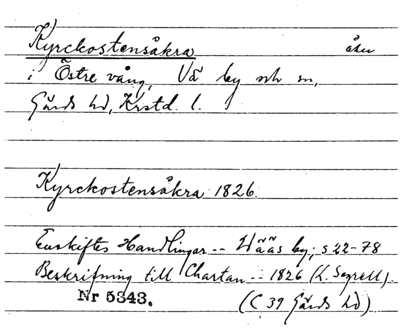 Kyrckostensåkra åker
i Östre vång, Vä by och sn,
Gärds hd, Krstd. l.
Kyrckostensåkra 1826
Enskiftes Handlingar -- Wääs by; s 22-78
Beskrifning till Chartan -- 1826 (L. Segrell).
Nr 5343. (C 39 Gärds hd)